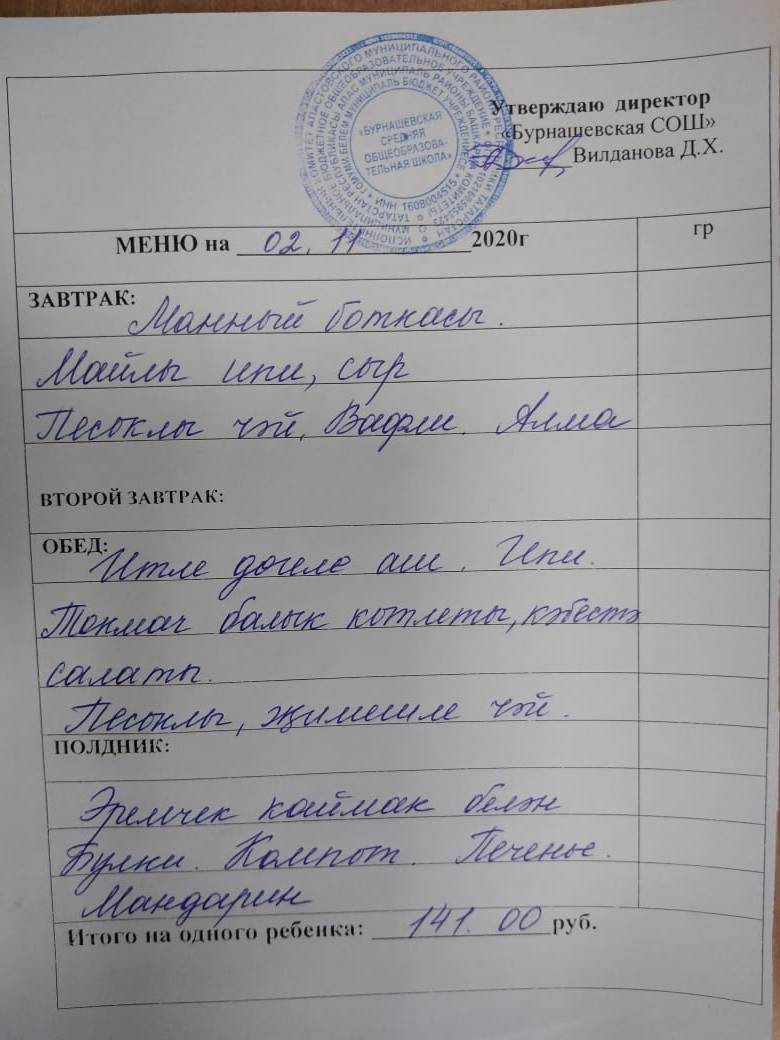 Утверждаю директор
«Бурнашевская СОШ»
Вилданова Д.Х.
«БУРНАШЕВСКАЯ
СРЕДНЯЯ
ОБЩЕОБРАЗОВА-
ТЕЛЬНАЯ ШКОЛА»
ИНН 1608004515
МЕНЮ на 02. 11 2020г
гр
ЗАВТРАК:
Манный боткасы.
Майлы ипи, сыр
Песоклы чәй, Вафли. Алма
ВТОРОЙ ЗАВТРАК:
ОБЕД:
Итле дөгеле аш. Ипи.
Токмач балык котлеты, кәбестә
салаты.
Песоклы, җимешле чәй.
ПОЛДНИК:
Эремчек каймак белән
Булки. Компот. Печенье.
Мандарин
Итого на одного ребенка: 141. 00 руб.